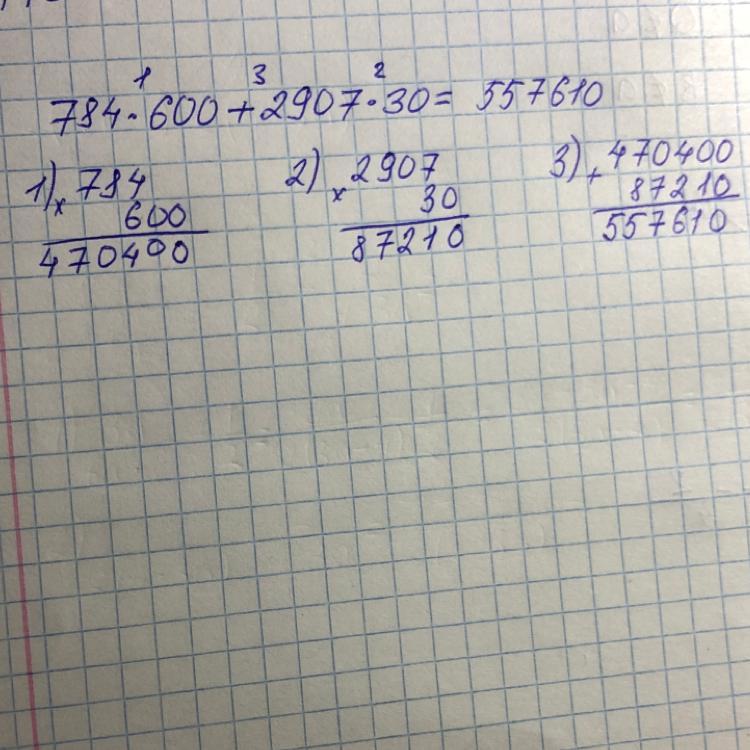 1 3 2
784·600+2907·30= 557610
1) x 784 2) x 2907 3) + 470400
600 30 87210
470400 87210 557610